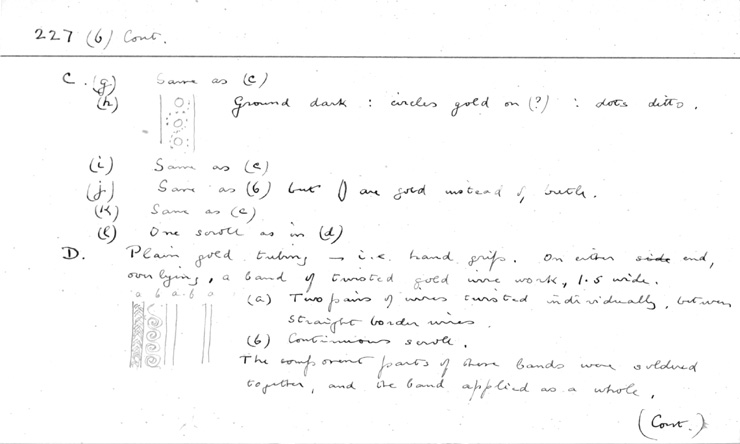 227 (6) Cont.
C. (g) Same as (c)
(h) Ground dark : circles gold on (?) : dots ditto.
(i) Same as (e)
(j) Same as (b) but () are gold instead of
(k) Same as (c)
(l) One scroll as in (d)
D. Plain gold tubing → i.e. hand grip. On either side end,
overlying, a band of twisted gold wire work, 1.5 wide.
a b a.b a
(a) Two pairs of wires twisted individually, between
straight border wires.
(b) Continuous scroll.
The component parts of these bands were soldered
together, and the band applied as a whole.
(Cont.)